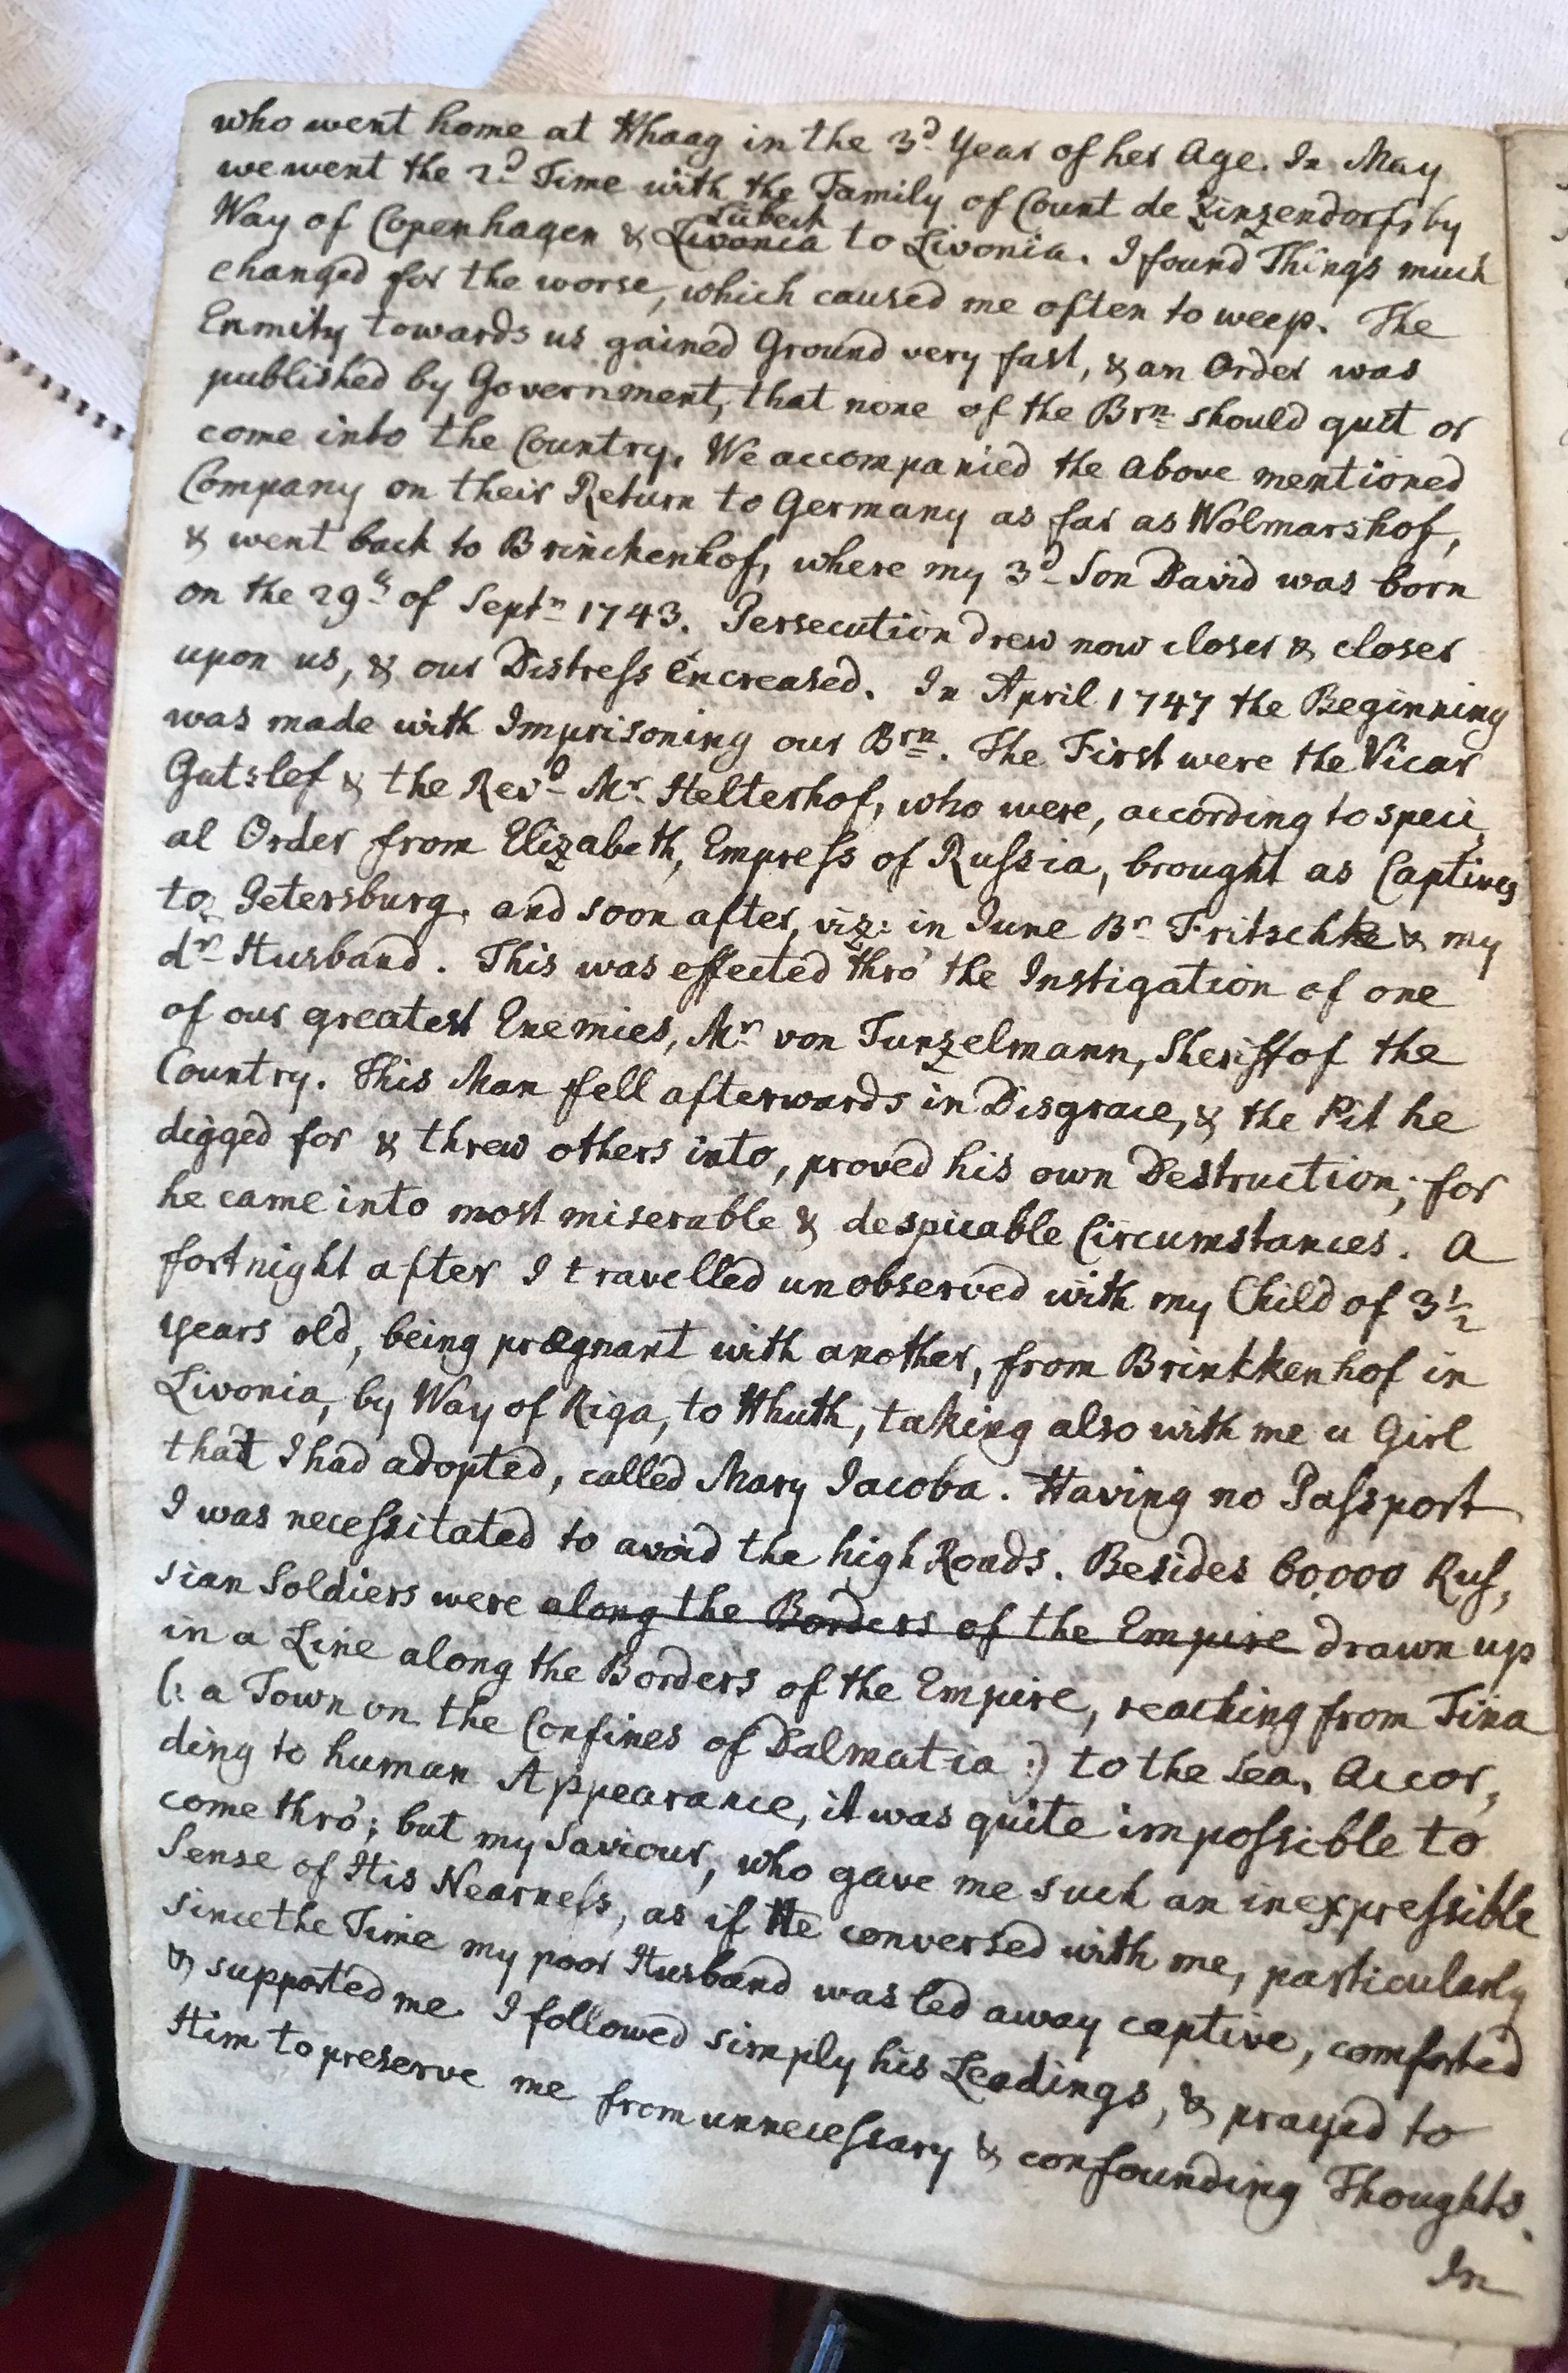 who went home at Hhaag in the 3d Year of her Age. In May
we went the 2d Time with the Family of Count de Zinzendorf, by
Way of Copenhagen & Livonia Lübeck to Livonia. I found Things much
changed for the worse, which caused me often to weep. The
Enmity towards us gained Ground very fast, & an Order was
published by Government, that none of the Brn should quit or
come into the Country. We accompanied the above mentioned
Company on their Return to Germany as far as Wolmarshof,
& went back to Brinckenhof, where my 3d Son David was born
on the 29th of Septr 1743. Persecution drew now closer & closer
upon us, & our Distress encreased. In April 1747 the Beginning
was made with Imprisoning our Brn. The First were the Vicar
Gutslef & the Revd Mr. Helterhof, who were, according to speci,
al Order from Elizabeth, Empress of Russia, brought as Captives
to Petersburg, and soon after, viz: in June Br Fritschke & my
dr Husband. This was effected thro' the Instigation of one
of our greatest Enemies, Mr von Tunzelmann, Sheriff of the
Country. This Man fell afterwards in Disgrace, & the Pit he
digged for & threw others into, proved his own Destruction; for
he came into most miserable & despicable Circumstances. A
fortnight after I travelled unobserved with my Child of 3½
years old, being prægnant with another, from Brinkkenhof in
Livonia, by Way of Riga, to Hhuth, taking also with me a Girl
that I had adopted, called Mary Jacoba. Having no Passport
I was necessitated to avoid the high Roads. Besides 60,000 Rus,
sian Soldiers were along the Borders of the Empire drawn up
in a Line along the Borders of the Empire, reaching from Tina
(: a Town on the Confines of Dalmatia :) to the Sea. Accor,
ding to human Appearance, it was quite impossible to
come thro'; but my Saviour, who gave me such an inexpressible
Sense of His Nearness, as if He conversed with me, particularly
since the Time my poor Husband was led away captive, comforted
& supported me. I followed simply his Leadings, & prayed to
Him to preserve me from unnecessary & confounding Thoughts.
In